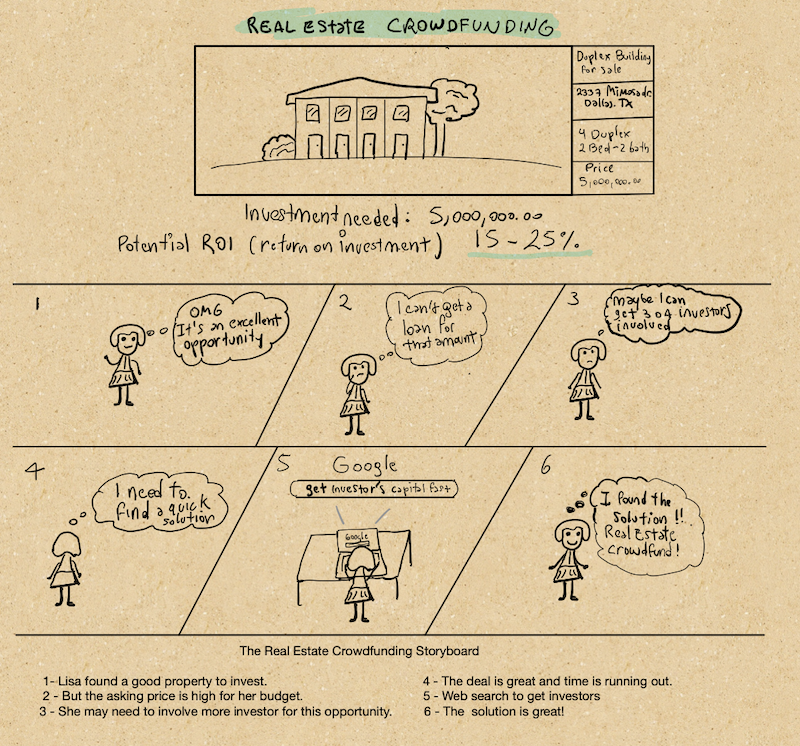 REAL ESTATE CROWDFUNDING
Duplex Building
For Sale
2337 Mimosa dr.
Dallas, TX
4 Duplex
2 Bed-2 bath
Price
5,000,000.00
Investment needed: 5,000,000.00
Potential ROI (return on investment) 15-25%
1
OMG
It's an excellent
opportunity
2
I can't get a
loan for
that amount
3
maybe I can
get 3 o 4 investors
involved
4
I need to
find a quick
solution
5
Google
get investor's capital fast
Google
6
I found the
solution!!
Real Estate
Crowdfund!
The Real Estate Crowdfunding Storyboard
1- Lisa found a good property to invest.
2 - But the asking price is high for her budget.
3 - She may need to involve more investor for this opportunity.
4 - The deal is great and time is running out.
5 - Web search to get investors
6 - The solution is great!